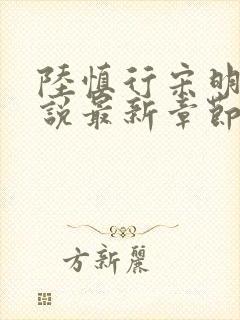 陸慎行宋明
說最新章節
方新麗